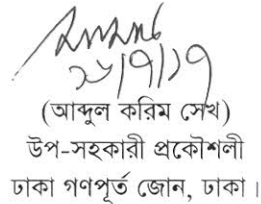 ২৮/৭/১৭
(আব্দুল করিম সেখ)
উপ-সহকারী প্রকৌশলী
ঢাকা গণপূর্ত জোন, ঢাকা।